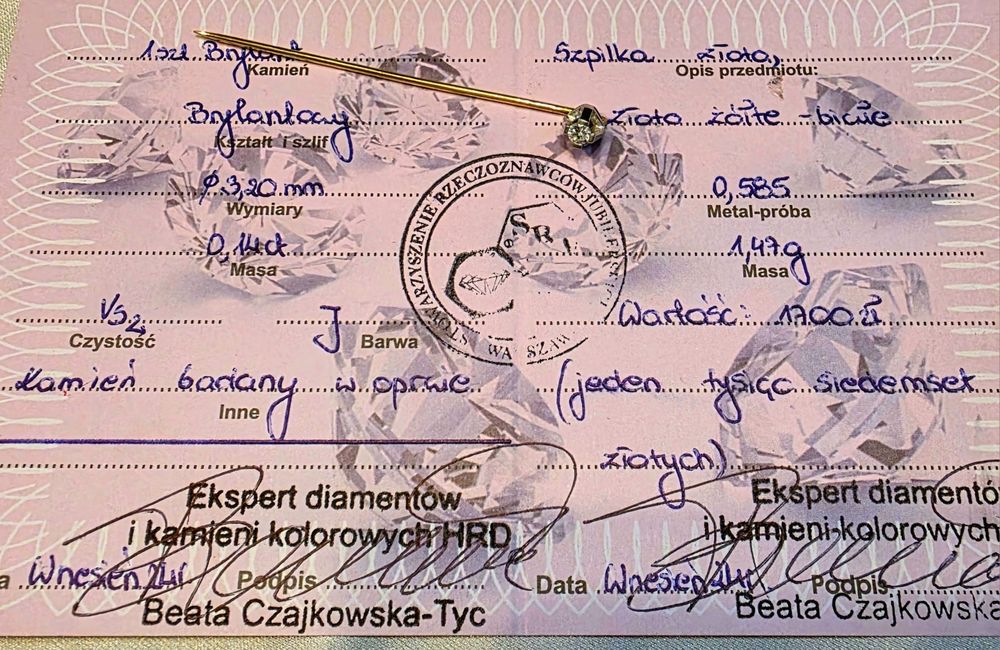 1szt Brylant
Kamień
Brylantowy
Kształt i szlif
φ 3,20 mm
Wymiary
0,14ct
Masa
VS2
Czystość
J
Barwa
Kamień badany w oprawie
Inne
Ekspert diamentów
i kamieni kolorowych HRD
a Wrzesień 24r Podpis
Beata Czajkowska-Tyc
STOWARZYSZENIE RZECZOZNAWCÓW JUBILERSKICH
SRJ
WARSZAWA
Szpilka złota,
Opis przedmiotu:
złoto żółte - białe
0,585
Metal-próba
1,47g
Masa
Wartość: 1700 zł
(jeden tysiąc siedemset
złotych)
Ekspert diamentó
i kamieni kolorowych
Data Wrzesień 24r Podpis
Beata Czajkowska